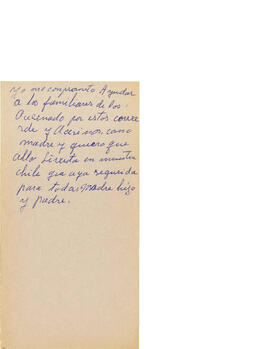 Yo me conpromto Ayudar
a los familiares de los
Acesinado por estos covar
rde y Acesinos. como
madre y quiero que
alla Livesta en nuestra
chile gia aya segurida
para todas Madre hijo
y padre.